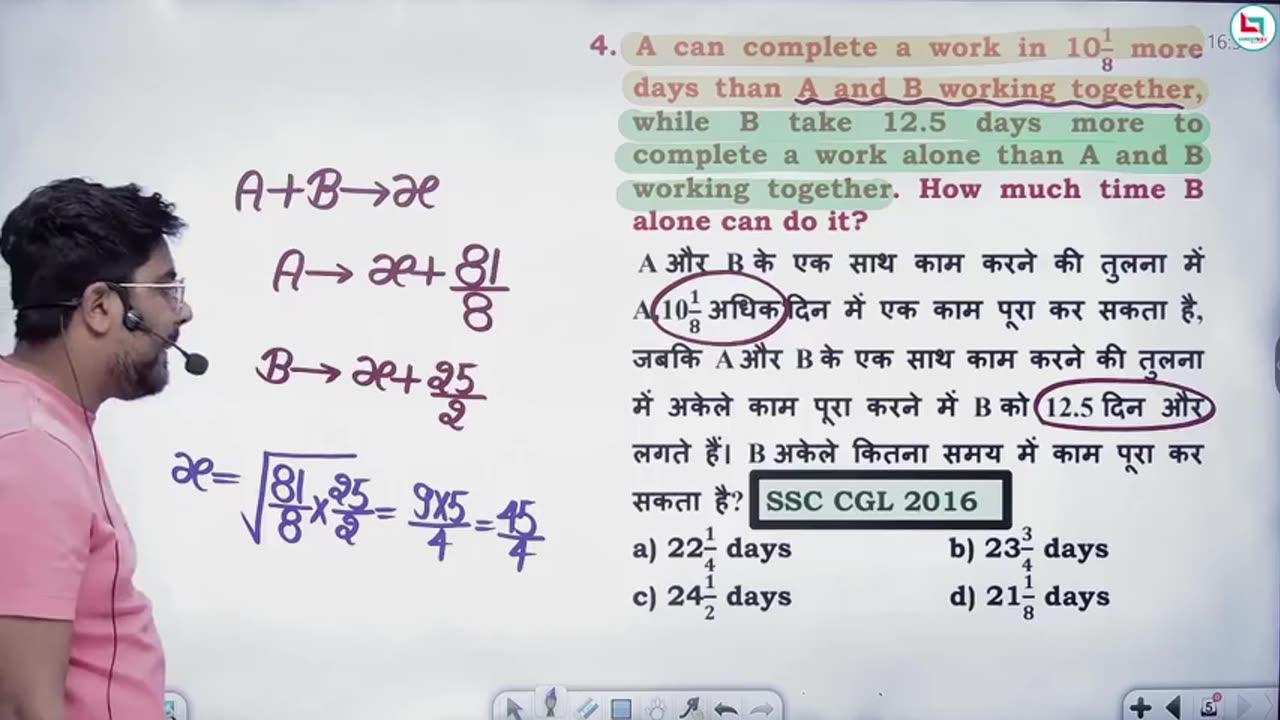 4. A can complete a work in 10 1/8 more
days than A and B working together,
while B take 12.5 days more to
complete a work alone than A and B
working together. How much time B
alone can do it?
A और B के एक साथ काम करने की तुलना में
A 10 1/8 अधिक दिन में एक काम पूरा कर सकता है,
जबकि A और B के एक साथ काम करने की तुलना
में अकेले काम पूरा करने में B को 12.5 दिन और
लगते हैं। B अकेले कितना समय में काम पूरा कर
सकता है? SSC CGL 2016
a) 22 1/4 days b) 23 3/4 days
c) 24 1/2 days d) 21 1/8 days
A+B→x
A→ x+81/8
B→ x+25/2
x=√81/8×25/2=9×5/4=45/4